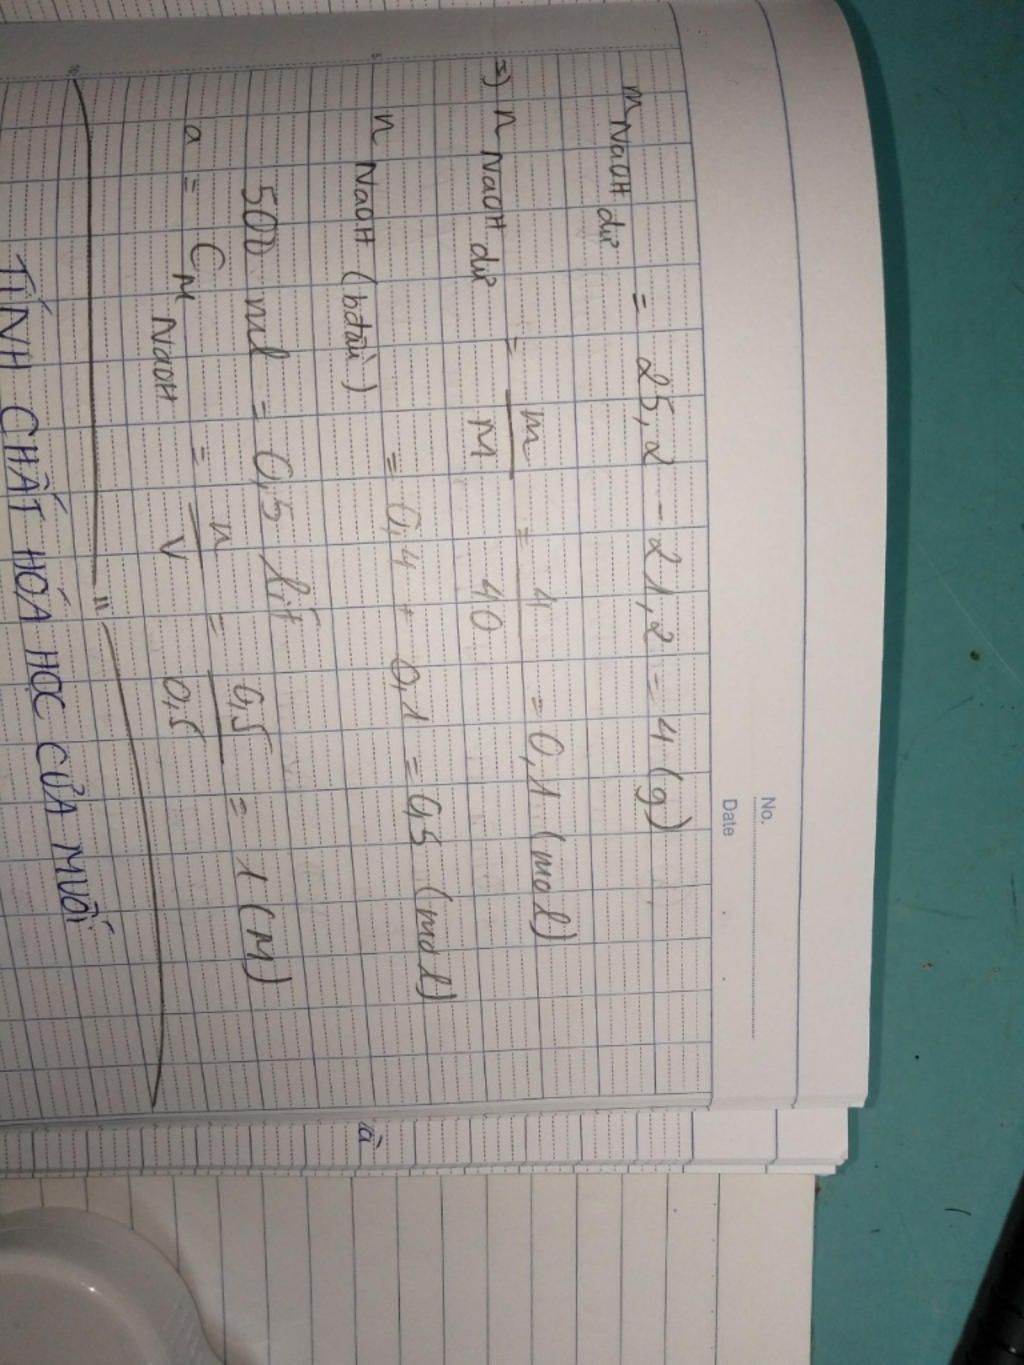 No.
Date
m NaOH dư = 25,2 - 21,2 = 4 (g)
=) n NaOH dư = m/M = 4/40 = 0,1 (mol)
n NaOH (bđầu) = 0,4 + 0,1 = 0,5 (mol)
500 ml = 0,5 lít
a = CM NaOH = n/V = 0,5/0,5 = 1 (M)
TÍNH CHẤT HÓA HỌC CỦA MUỐI